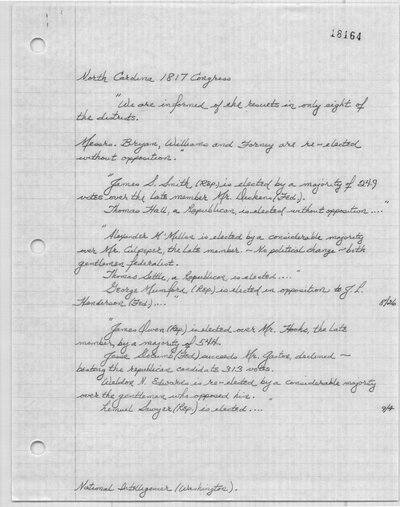 18164
North Carolina 1817 Congress
"We are informed of the results in only eight of
the districts.
Messrs. Bryan, Williams and Forney are re-elected
without opposition."
"James S. Smith (Rep) is elected by a majority of 249
votes over the late member Mr. Dickens (Fed).
Thomas Hall, a Republican, is elected without opposition...."
"Alexander McMillan is elected by a considerable majority
over Mr. Culpeper, the late member. - No political change - both
gentlemen federalist.
Thomas Settle, a Republican is elected...."
George Mumford (Rep) is elected in opposition to J. L.
Henderson (Fed)...." 8/26
"James Owen (Rep) is elected over Mr. Hooks, the late
member, by a majority of 544.
Jesse Slocumb (Fed) succeeds Mr. Gaston, declined -
beating the republican candidate 313 votes.
Weldon N. Edwards is re-elected by a considerable majority
over the gentleman who opposed him.
Lemuel Sawyer (Rep.) is elected...." 9/4
National Intelligencer (Washington).